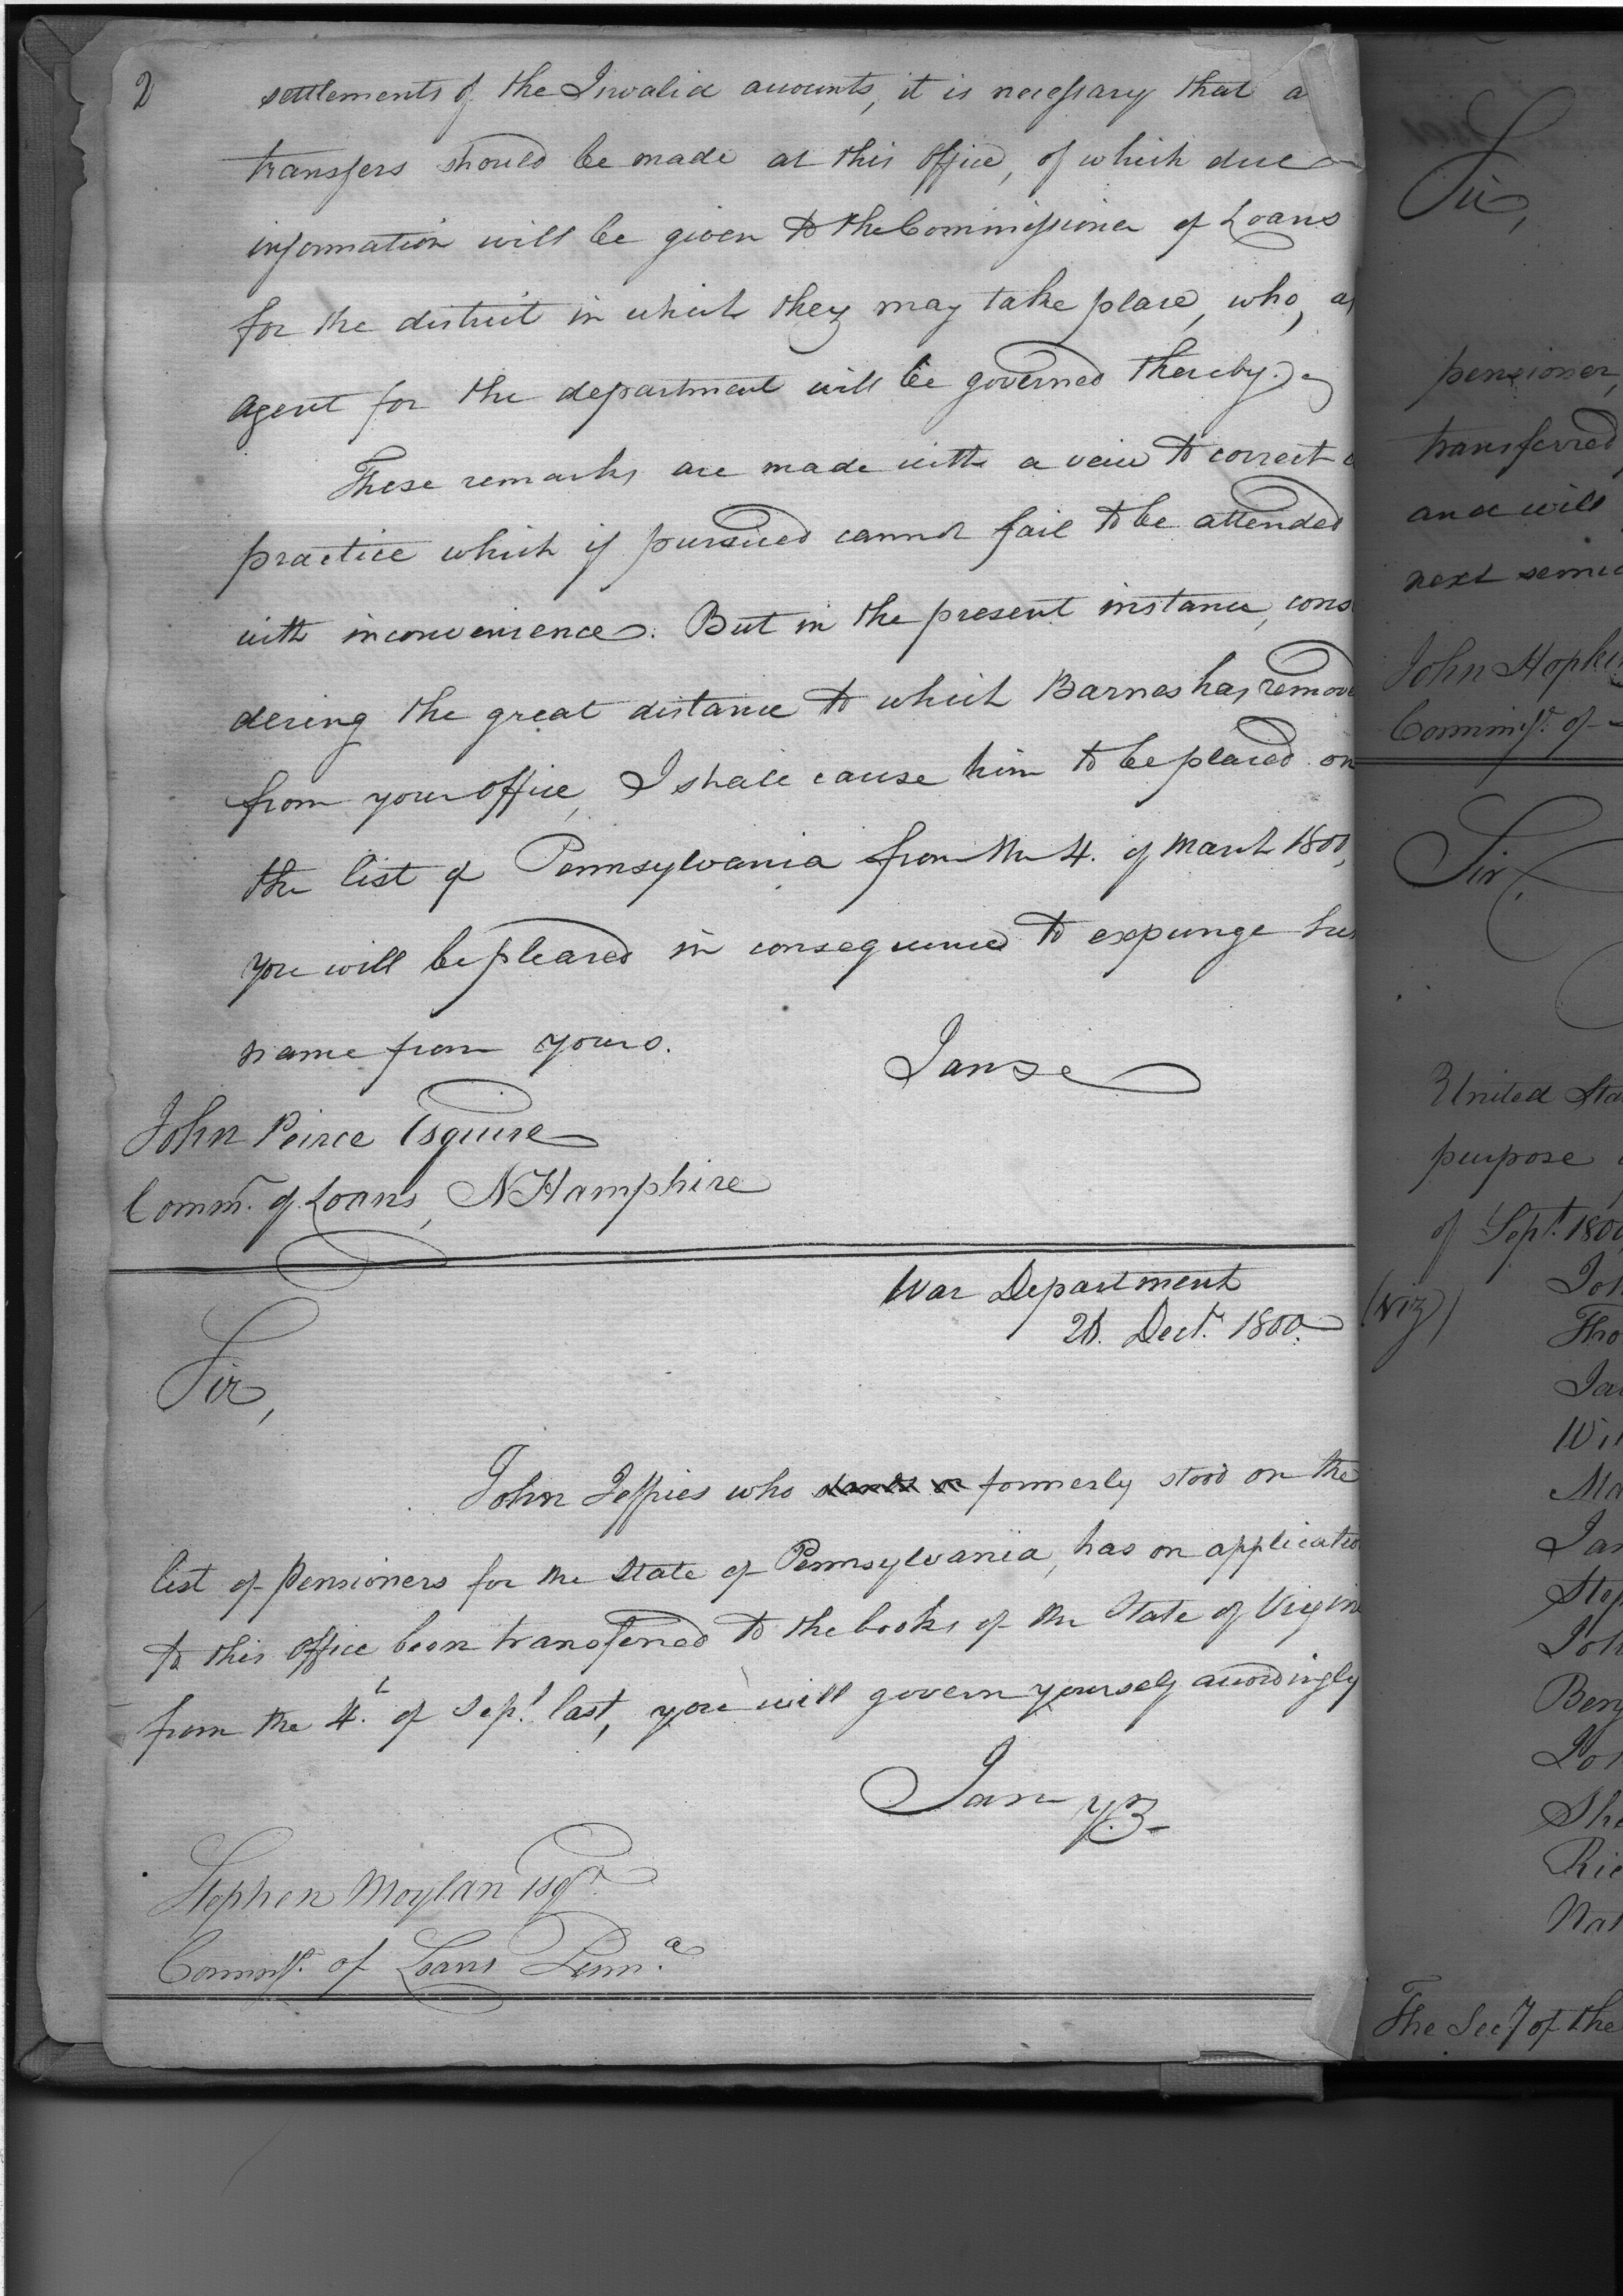 2
settlements of the Invalid accounts, it is necessary that a
transfers should be made at this Office, of which due
information will be given to the Commissioner of Loans
for the district in which they may take place, who, as
agent for the department will be governed thereby.
These remarks are made with a veiw to correct a
practice which if pursued cannot fail to be attended
with inconvenience. But in the present instance, cons
dering the great distance to which Barnes has remove
from your office, I shall cause him to be placed on
the list of Pennsylvania from the 4. of March 1800,
you will be pleased in consequence to expunge his
name from yours.
I am &c
John Peirce Esquire
Comm. of Loans, N Hampshire
War Department
Dect. 1800.
Sir,
John Jeffries who formerly stood on the
list of pensioners for the State of Pennsylvania, has on applicatio
to this Office been transferred to the books of the State of Virgin
from the 4th of Sept. last, you will govern yourself accordingly
I am
Stephen Moylan Esqr.
Commissr. of Loans Penna.
Sir,
pensioner,
transferred
and will
next semi
John Hopki
Commissr. of
Sir,
United Sta
purpose
of Sept. 1800
(Viz)
Joh
Tho
Ja
Wil
Ma
Jam
Step
Joh
Benj
Sh
Ric
Nat
The Secy of the